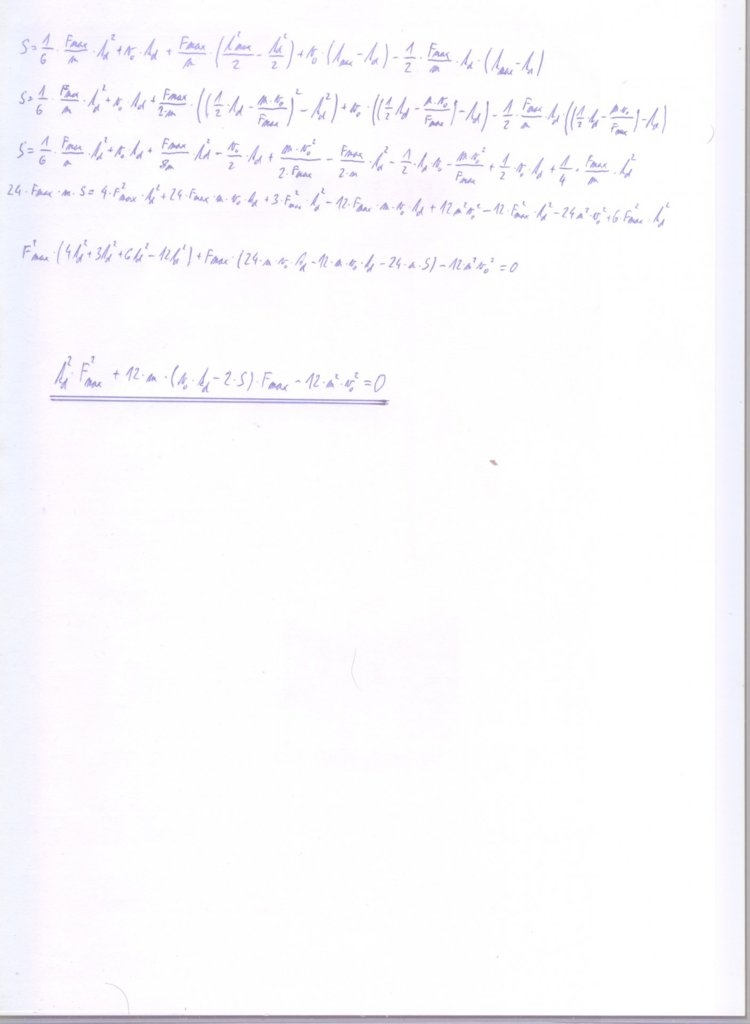 S = 1/6 · Fmax/m · t_d² + v₀ · t_d + Fmax/m · (t²max/2 − t_d²/2) + v₀ · (t_max − t_d) − 1/2 · Fmax/m · t_d · (t_max − t_d)
S = 1/6 · Fmax/m · t_d² + v₀ · t_d + Fmax/2·m · ((1/2 · t_d − m·v₀/Fmax)² − t_d²) + v₀ · ((1/2 t_d − m·v₀/Fmax) − t_d) − 1/2 · Fmax/m · t_d · ((1/2 t_d − m·v₀/Fmax) − t_d)
S = 1/6 · Fmax/m · t_d² + v₀ · t_d + Fmax/8m · t_d² − v₀/2 · t_d + m·v₀²/2·Fmax − Fmax/2·m · t_d² − 1/2 · t_d · v₀ − m·v₀²/Fmax + 1/2 · v₀ · t_d + 1/4 · Fmax/m · t_d²
24 · Fmax · m · S = 4 · F²max · t_d² + 24 · Fmax · m · v₀ · t_d + 3 · F²max · t_d² − 12 · Fmax · m · v₀ · t_d + 12 m² v₀² − 12 · F²max · t_d² − 24 m² · v₀² + 6 · F²max · t_d²
F²max · (4t_d² + 3t_d² + 6t_d² − 12t_d²) + Fmax · (24 · m · v₀ · t_d − 12 · m · v₀ · t_d − 24 · m · S) − 12 m² v₀² = 0
t_d² · F²max + 12 · m · (v₀ · t_d − 2 · S) · Fmax − 12 · m² · v₀² = 0